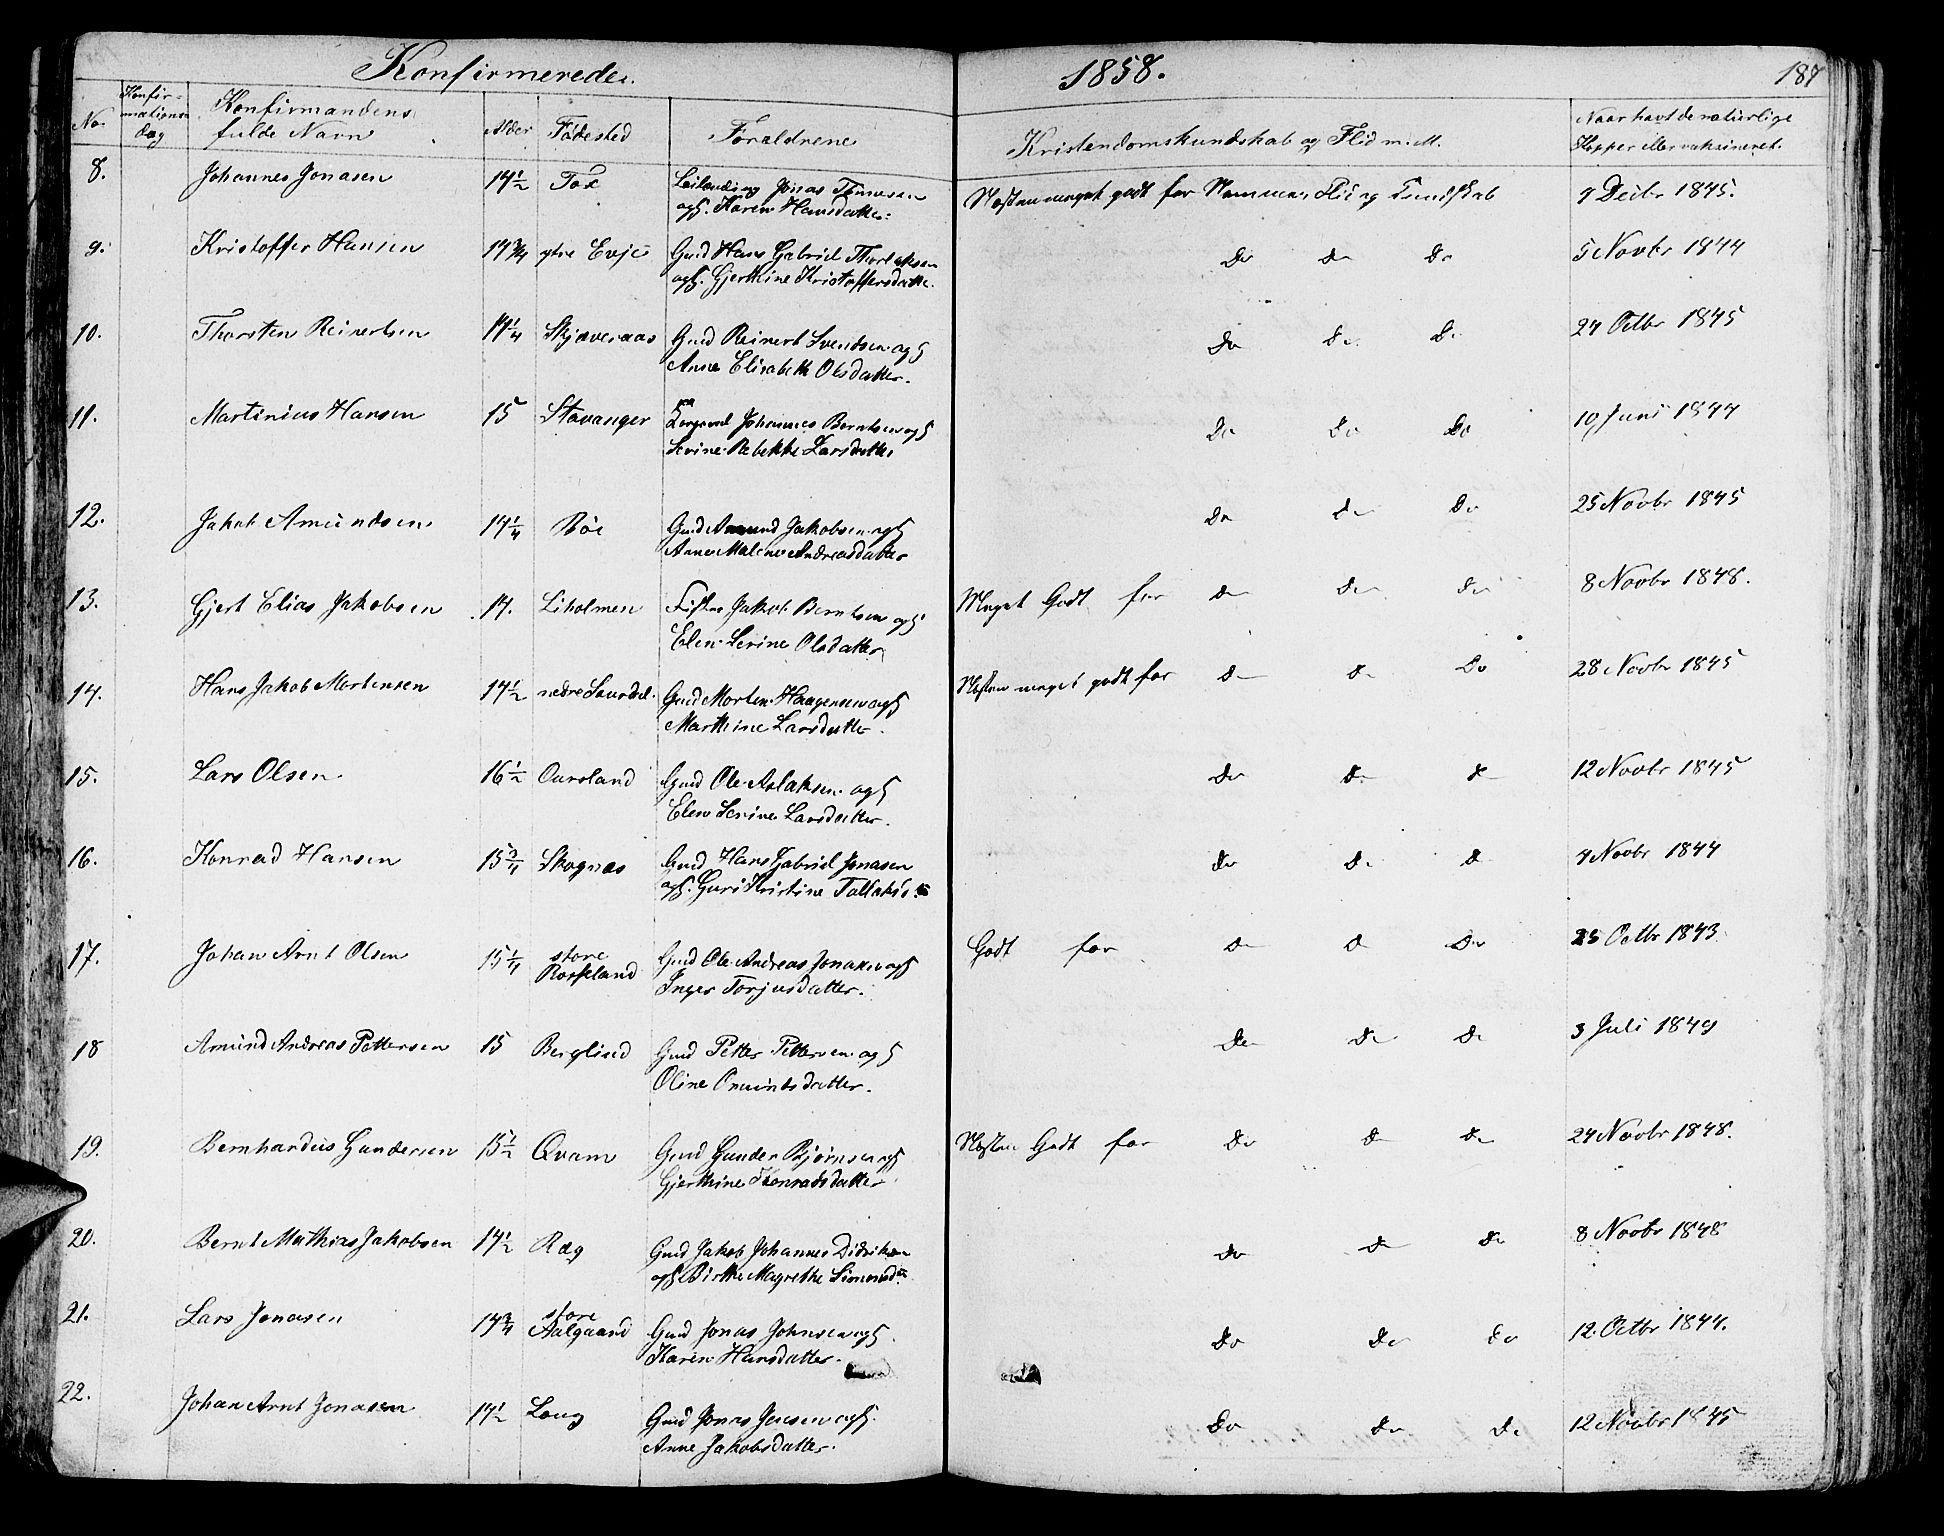 Konfirmerede.
1858.
187
No.
Konfir-
mations
dag
Konfirmandens
fulde Navn
Alder
Fødested
Forældrene
Kristendomskundskab og Flid m. M.
Naar havt de naturlige
Kopper eller vaksineret.
8. Johannes Jonasen 14 1/2 Jonas Tønnesen Næsten meget godt for Nemme, Flid og Kundskab 9 Decbr 1845.
og H. Karen Hansdatter.
9. Kristoffer Hansen 14 3/4 ytre Evje Gmd Hans Gabriel Thorlaksen Do Do Do 5 Novbr 1844
og H. Gjerthine Kristoffersdatter.
10. Thorsten Reinertsen 14 1/4 Skjæveraas Gmd Reinert Svendsen og H Do Do Do 24 Octbr 1845
Anne Elisabeth Olsdatter.
11. Martinius Hansen 15 Stavanger Johannes Berntsen og H Do Do Do 10 Juni 1844
Serine Rebekke Larsdatter
12. Jakob Amundsen 14 1/4 Bøe Gmd Amund Jakobsen og H Do Do Do 25 Novbr 1845
Anne Malene Andreasdatter
13. Gjert Elias Jakobsen 14. Liholmen Jakob Berntsen og H Meget Godt for Do Do Do 8 Novbr 1848.
Elen Serine Olsdatter
14. Hans Jakob Mortensen 14 1/2 nedre Gmd Morten Haagensen og H Næsten meget godt for Do Do Do 28 Novbr 1845
Marthine Larsdatter.
15. Lars Olsen 16 1/2 Ouroland Gmd Ole Aslaksen og H Do Do Do 12 Novbr 1845
Elen Serine Larsdatter.
16. Konrad Hansen 15 3/4 Skognæs Gmd Hans Gabriel Jonasen Do Do Do 4 Novbr 1844
og H. Guri Kristine Tallaksd.
17. Johan Arnt Olsen 15 1/4 store Gmd Ole Andreas Jonasen og H Godt for Do Do Do 25 Octbr 1843
Rosseland Inger Torjusdatter.
18 Amund Andreas Pettersen 15 Berglind Gmd Petter Pettersen og H Do Do Do 3 Juli 1849
Oline Omundsdatter.
19. Bernhardus Gundersen 15 1/2 Qvam Gmd Gunder Bjørnsen og H Næsten Godt for Do Do Do 24 Novbr 1848.
Gjerthine Konradsdatter
20. Bernt Mathias Jakobsen 14 1/2 Ræg Gmd Jakob Johannes Didriksen Do Do Do 8 Novbr 1848
og H Birthe Magrethe Simonsd
21. Lars Jonasen 14 3/4 store Gmd Jonas Johnsen og H Do Do Do 12. Octbr 1844.
Aalgaard Karen Hansdatter.
22. Johan Arnt Jonasen 14 1/2 Gmd Jonas Jensen og H. Do Do Do 12 Novbr 1845
Anne Jakobsdatter.